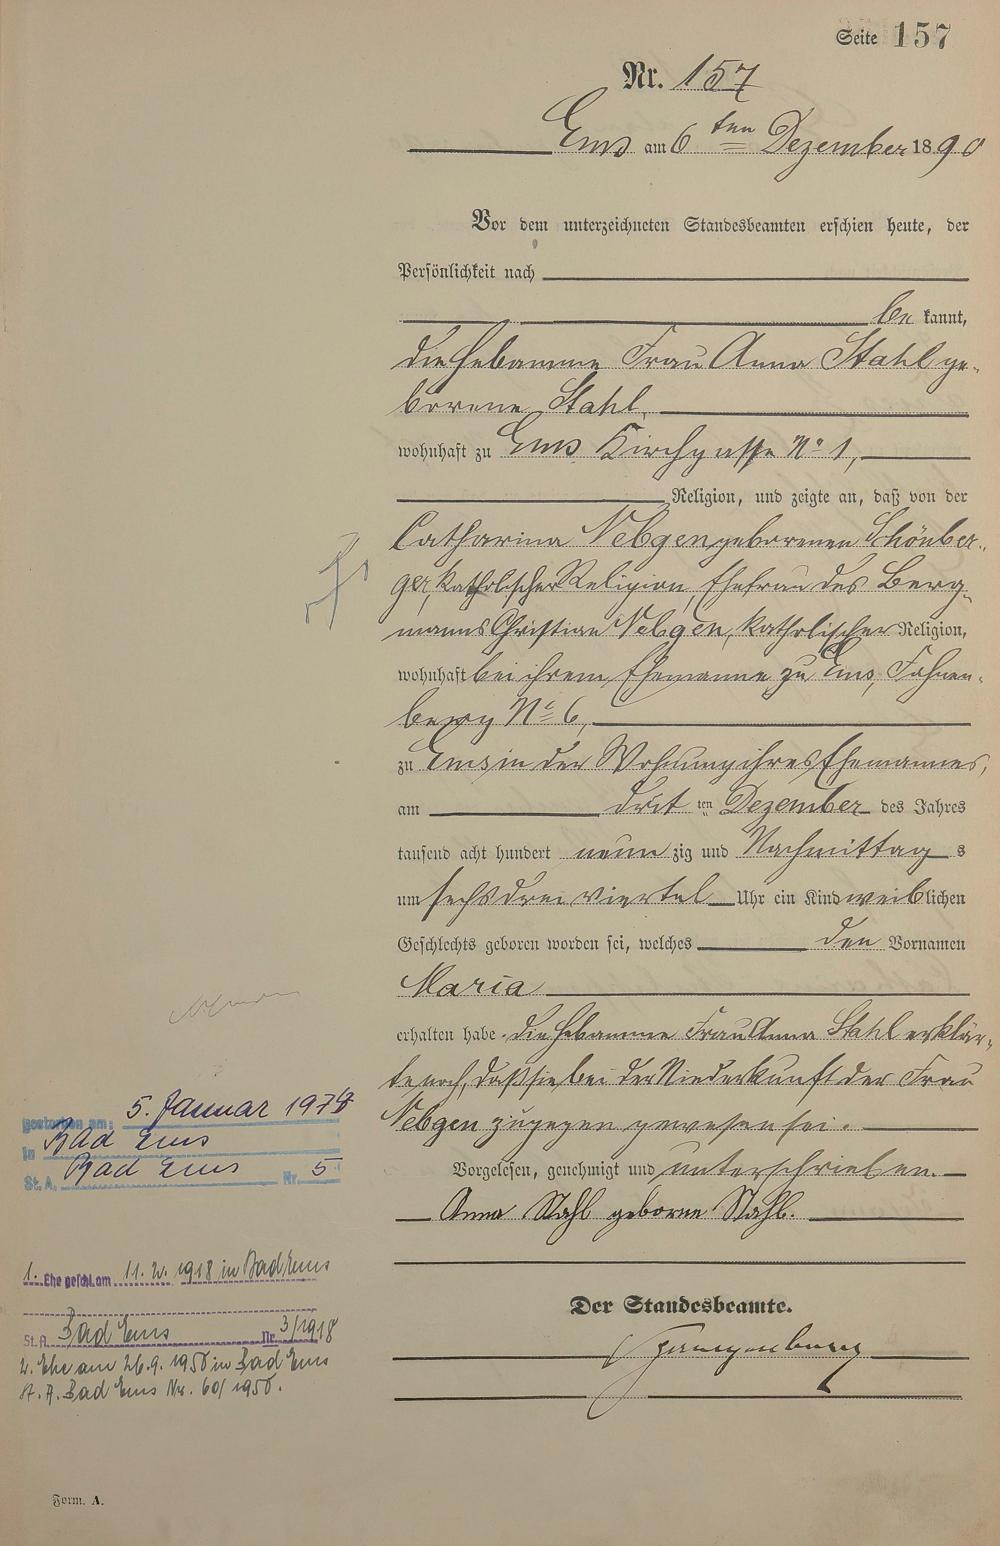 Seite 157
Nr. 157
Ems am 6ten Dezember 1890
Vor dem unterzeichneten Standesbeamten erschien heute, der
Persönlichkeit nach
be kannt,
die Hebamme Frau Anna Stahl ge-
borene Stahl,
wohnhaft zu Ems Kirchgasse No 1,
Religion, und zeigte an, daß von der
Catharina Nebgen geborenen Schönber-
ger, katholischer Religion, Ehefrau des Berg-
manns Christian Nebgen, katholischer Religion,
wohnhaft bei ihrem Ehemanne zu Ems, Fahnen-
berg No 6,
zu Ems in der Wohnung ihres Ehemannes,
am dritten Dezember des Jahres
tausend acht hundert neun zig und Nachmittag s
um sechs drei viertel Uhr ein Kind weiblichen
Geschlechts geboren worden sei, welches den Vornamen
Maria
erhalten habe. Die Hebamme Frau Anna Stahl erklär-
te noch, daß sie bei der Niederkunft der Frau
Nebgen zugegen gewesen sei.
Vorgelesen, genehmigt und unterschrieben.
Anna Stahl geborne Stahl.
Der Standesbeamte.
gestorben am: 5. Januar 1978
in Bad Ems
St. A. Bad Ems Nr. 5
1. Ehe geschl. am 11.2. 1918 in Bad Ems
St. A. Bad Ems Nr. 3/1918
2. Ehe am 26.9. 1950 in Bad Ems
St. A. Bad Ems Nr. 60/1950.
Form. A.